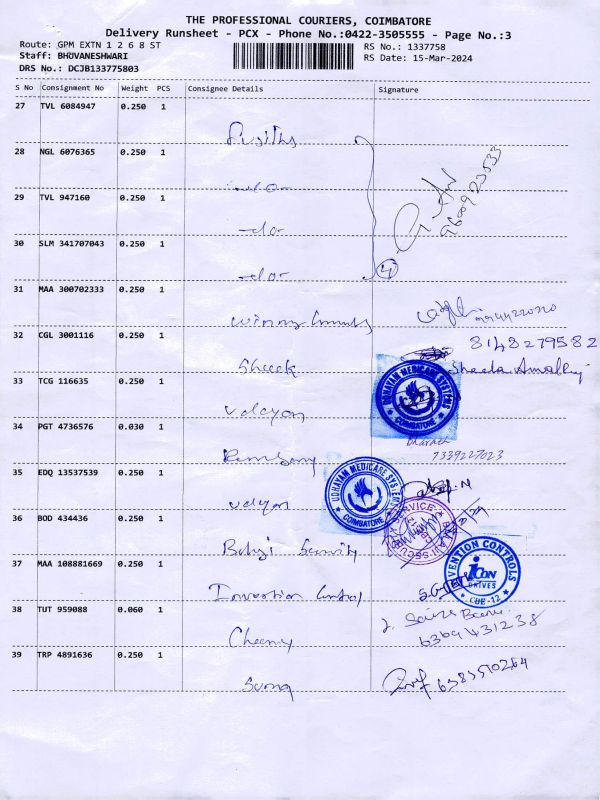 THE PROFESSIONAL COURIERS, COIMBATORE
Delivery Runsheet - PCX - Phone No.:0422-3505555 - Page No.:3
Route: GPM EXTN 1 2 6 8 ST
RS No.: 1337758
Staff: BHUVANESHWARI
RS Date: 15-Mar-2024
DRS No.: DCJB133775803
S No Consignment No Weight PCS Consignee Details Signature
27 TVL 6084947 0.250 1
28 NGL 6076365 0.250 1
29 TVL 947160 0.250 1
-do-
30 SLM 341707043 0.250 1
-do- 4
31 MAA 300702333 0.250 1
32 CGL 3001116 0.250 1
8148279582
Sheeck
33 TCG 116635 0.250 1
UDHAYAM MEDICARE SYSTEMS
COIMBATORE
34 PGT 4736576 0.030 1
Bharath
7339227023
35 EDQ 13537539 0.250 1
UDHAYAM MEDICARE SYSTEMS
COIMBATORE
36 BOD 434436 0.250 1
Balaji Security
37 MAA 108881669 0.250 1
Invention Control
INVENTION CONTROLS
icon
DRIVES
CBE-12
38 TUT 959088 0.060 1
6369431238
39 TRP 4891636 0.250 1
6383510264